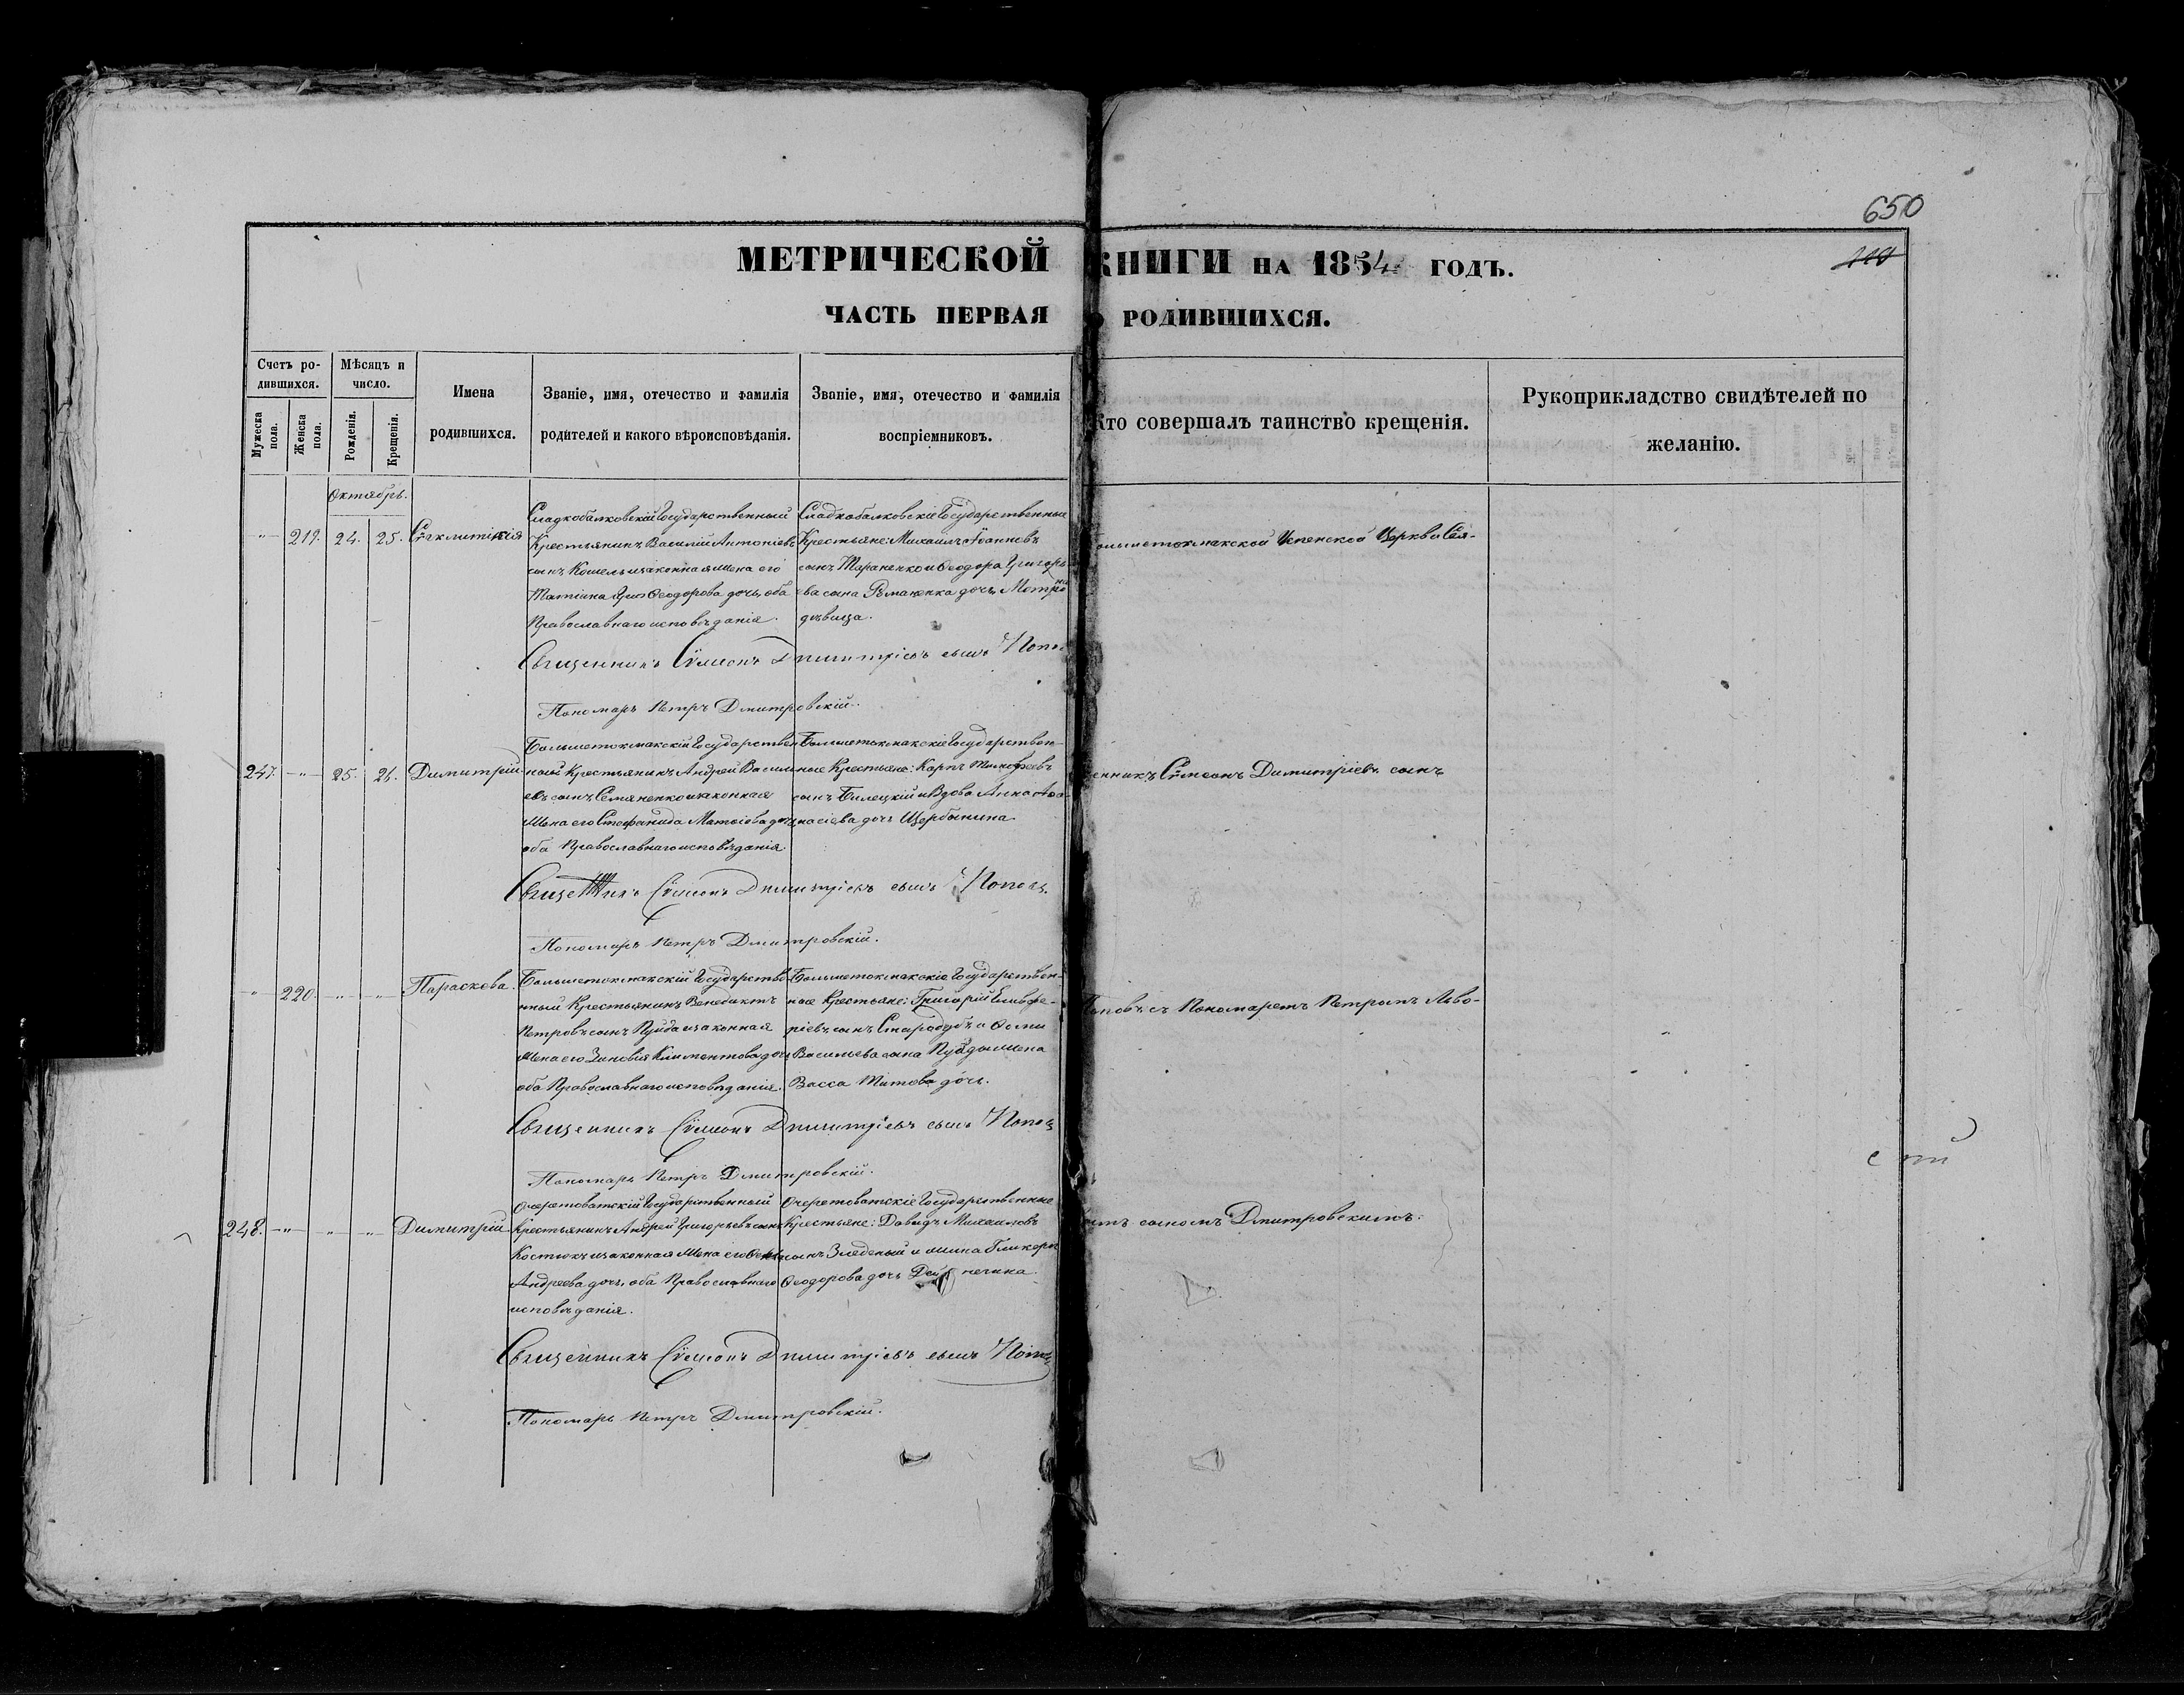 650
МЕТРИЧЕСКОЙ КНИГИ НА 1854 ГОДЪ.
ЧАСТЬ ПЕРВАЯ О РОДИВШИХСЯ.
Счетъ ро-
дившихся.
Мужеска пола.
Женска пола.
Мѣсяцъ и
число.
Рожденія.
Крещенія.
Имена
родившихся.
Званіе, имя, отечество и фамилія
родителей и какого вѣроисповѣданія.
Званіе, имя, отечество и фамилія
воспріемниковъ.
Кто совершалъ таинство крещенія.
Рукоприкладство свидѣтелей по
желанію.
Октябрь.
-"- 219. 24. 25. Сѵнклитикія
Сладкобалковскій Государственный
Крестьянинъ Василій Антоніевъ
сынъ Кошель и законная жена его
Татіана Ѳеодорова дочь, оба
Православнаго исповѣданія.
Сладкобалковскіе Государственные
Крестьяне: Михаилъ Іоанновъ
сынъ Тараненко и Ѳеодора Григорь
ева сына Романенка дочь
дѣвица.
Священникъ Сѵмеонъ Димитріевъ сынъ Попов
Пономарь Петръ Дмитровскій.
247. -"- 25. 26. Димитрій
Большетокмакскій Государствен
ный Крестьянинъ Андрей Василі
евъ сынъ Семяненко и законная
жена его Стефанида Матѳіова дочь,
оба Православнаго исповѣданія.
Большетокмакскіе Государствен-
ные Крестьяне: Карпъ Тимофеевъ
сынъ Билецкій и Вдова Анна Аѳа-
насіева дочь Щербинина.
Священникъ Сѵмеонъ Димитріевъ сынъ Попов
Пономарь Петръ Дмитровскій.
-"- 220. -"- -"- Параскева.
Большетокмакскій Государстве
нный Крестьянинъ Венедиктъ
Петровъ сынъ Пуйда и законная
жена его Зиновія Климентова дочь
оба Православнаго исповѣданія.
Большетокмакскіе Государствен-
ные Крестьяне: Григорій Елевфе-
ріевъ сынъ Стародубъ и
Васильева сына Пуйды жена
Васса Титова дочь.
Священникъ Сѵмеонъ Димитріевъ сынъ Попов
Пономарь Петръ Дмитровскій.
248. -"- -"- -"- Димитрій
Очеретоватскій Государственный
Крестьянинъ Андрей Григорьевъ сынъ
Костюкъ и законная жена его
Андреева дочь, оба Православнаго
исповѣданія.
Очеретоватскіе Государственные
Крестьяне: Давидъ Михаиловъ
сынъ и жена Гликерія
Ѳеодорова дочь
Священникъ Сѵмеонъ Димитріевъ сынъ Попов
Пономарь Петръ Дмитровскій.
ольшетокмакской Успенской Церкви Свя-
щенникъ Сѵмеонъ Димитріевъ сынъ
Поповъ съ Пономаремъ Петромъ Льво-
вымъ сыномъ Дмитровскимъ.